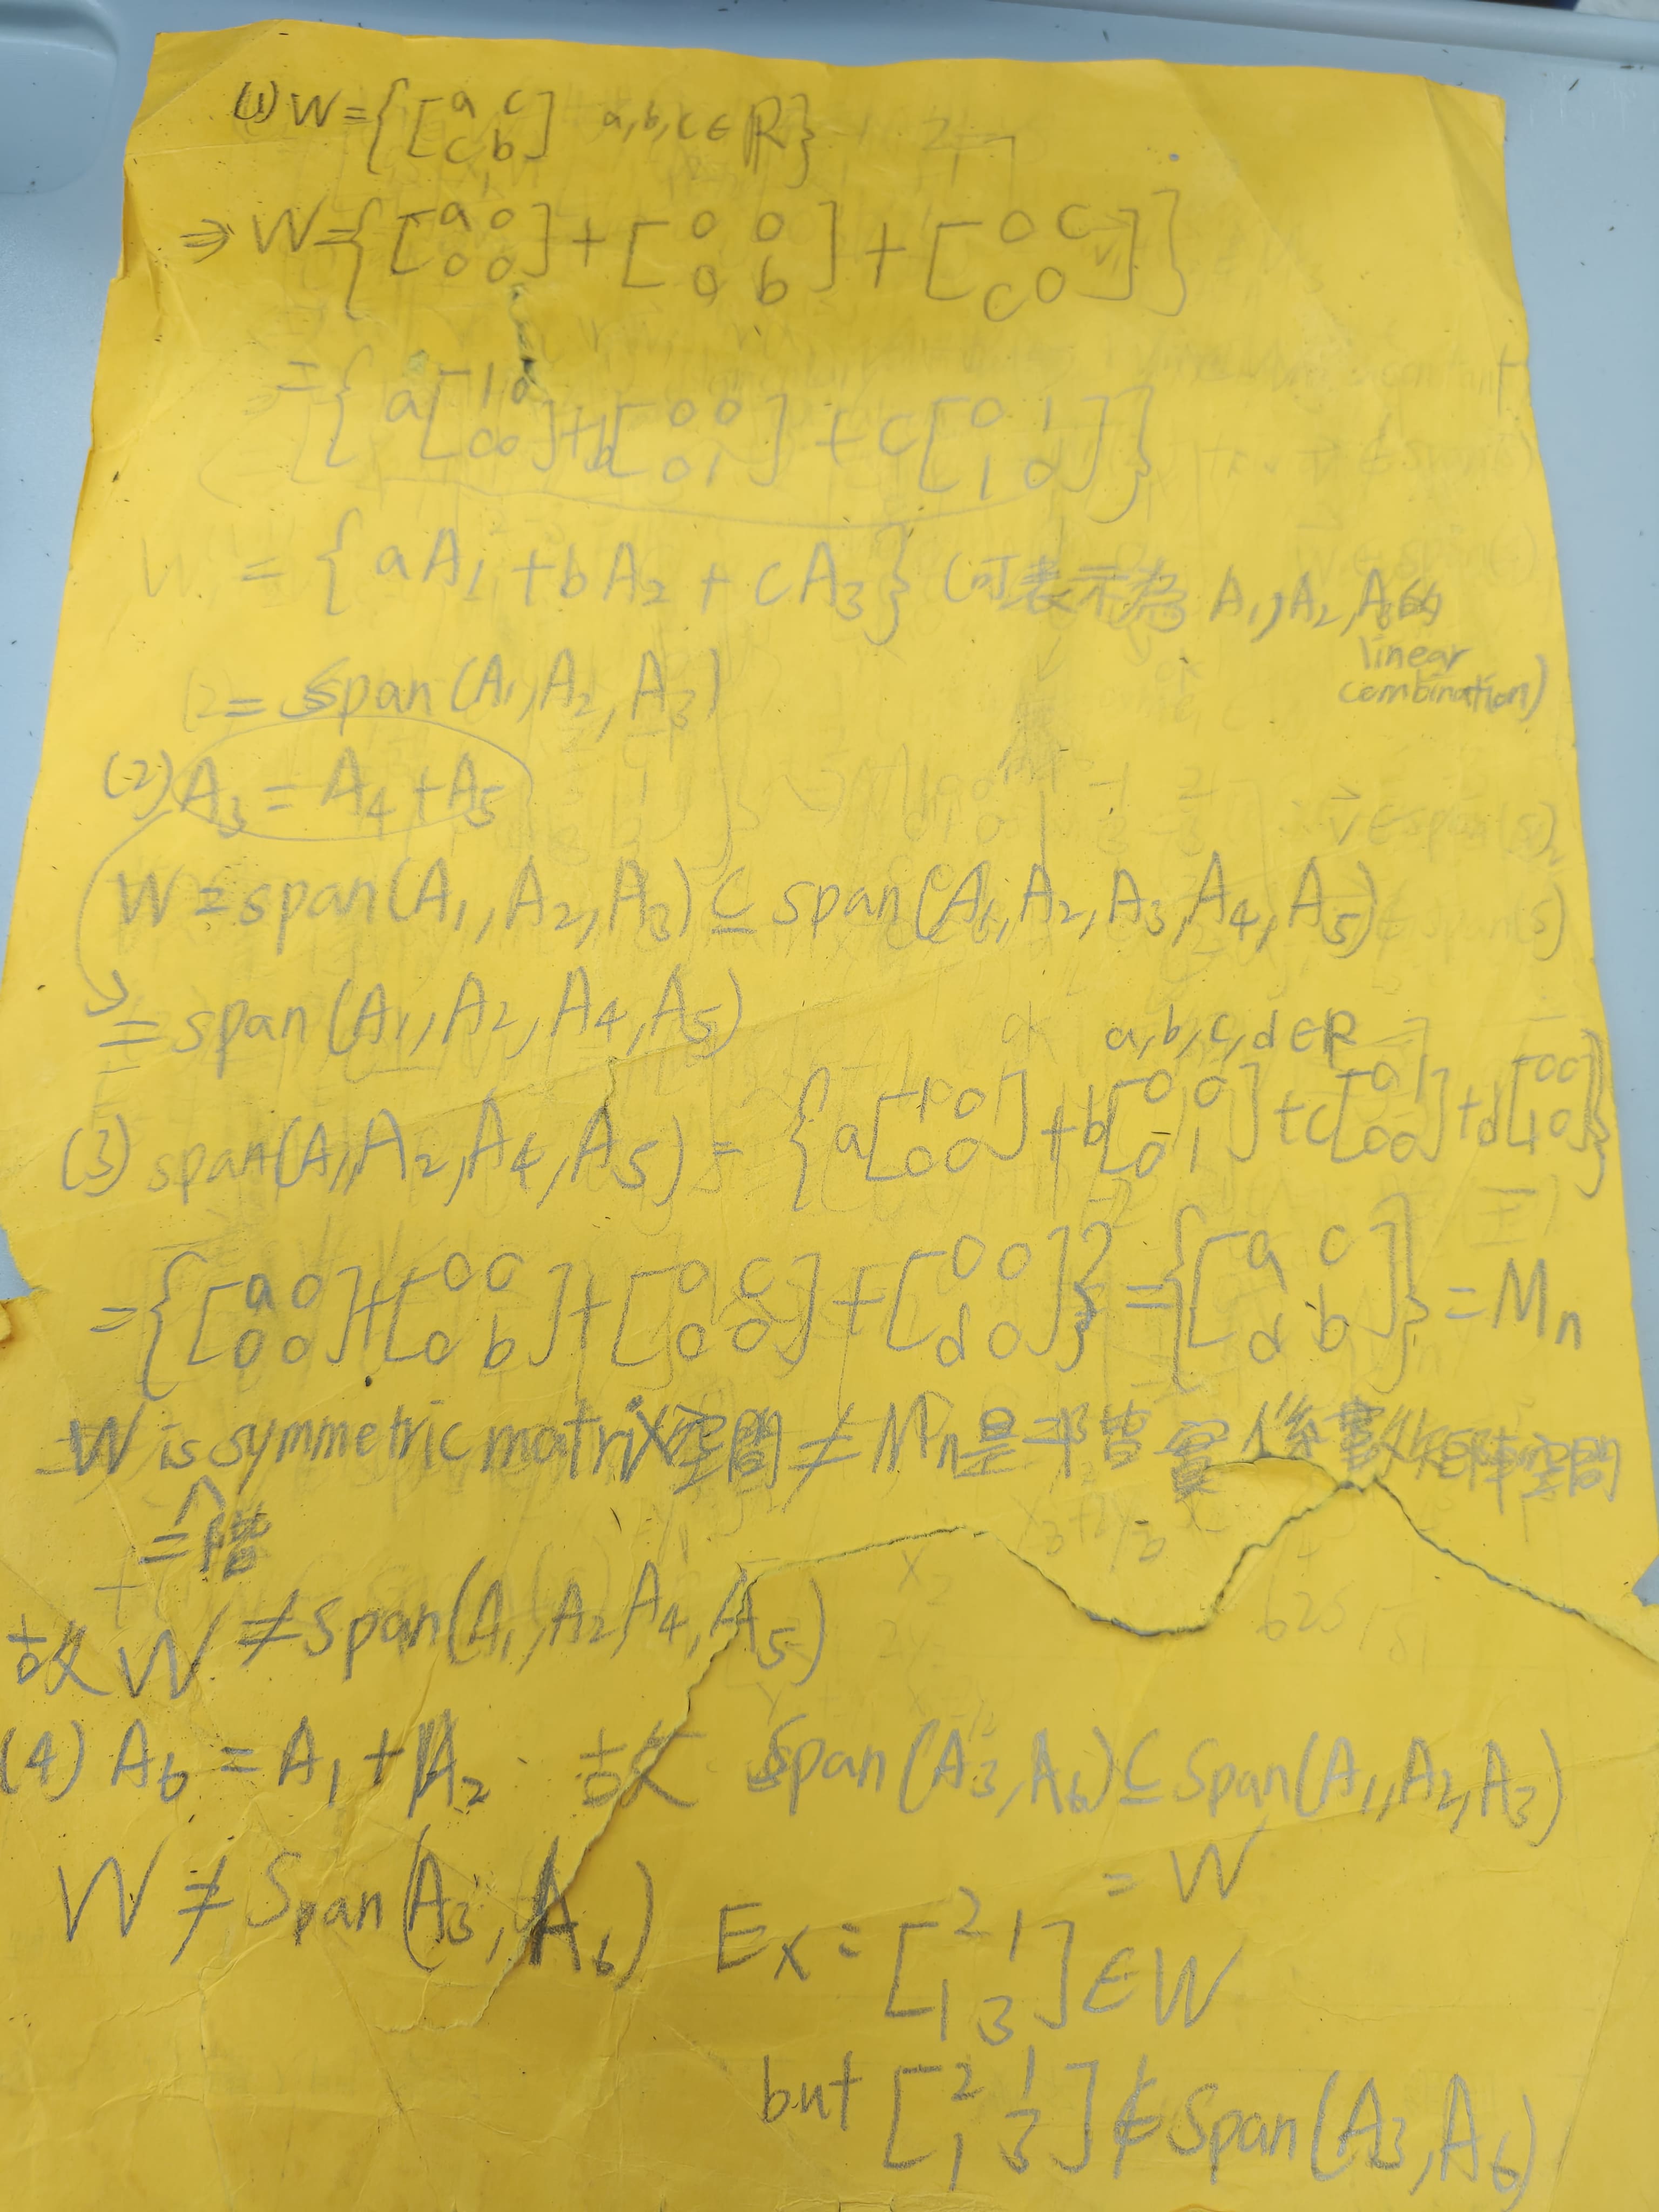 (1) W = { [a c; c b] a,b,c ∈ ℝ }
⇒ W = { [a 0; 0 0] + [0 0; 0 b] + [0 c; c 0] }
= { a[1 0; 0 0] + b[0 0; 0 1] + c[0 1; 1 0] }
W = { aA₁ + bA₂ + cA₃ } (可表示為 A₁, A₂, A₃的 linear combination)
= span(A₁, A₂, A₃)
(2) A₃ = A₄ + A₅
W = span(A₁, A₂, A₃) ⊆ span(A₁, A₂, A₃, A₄, A₅)
= span(A₁, A₂, A₄, A₅)
a,b,c,d ∈ ℝ
(3) span(A₁, A₂, A₄, A₅) = { a[1 0; 0 0] + b[0 0; 0 1] + c[0 1; 0 0] + d[0 0; 1 0] }
= { [a 0; 0 0] + [0 0; 0 b] + [0 c; 0 0] + [0 0; d 0] } = { [a c; d b] } = Mn
W is symmetric matrix空間 ≠ Mn是 實係數矩陣空間
二階
故 W ≠ span(A₁, A₂, A₄, A₅)
(4) A₆ = A₁ + A₂ 故 Span(A₃, A₆) ⊆ Span(A₁, A₂, A₃)
= W
W ≠ Span(A₃, A₆) Ex: [2 1; 1 3] ∈ W
but [2 1; 1 3] ∉ Span(A₃, A₆)